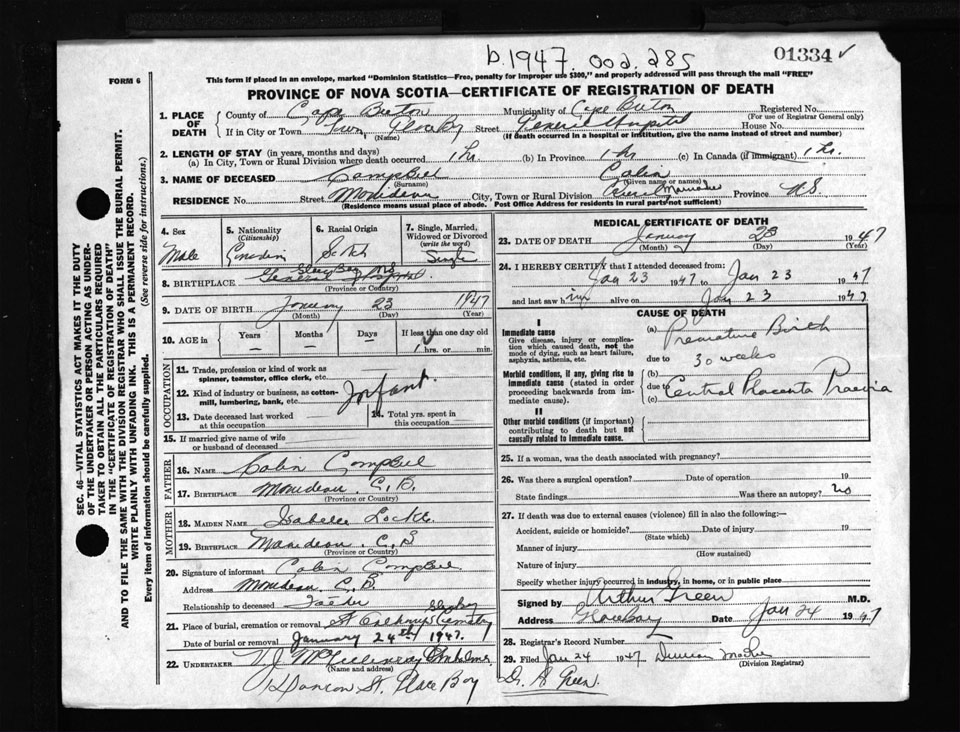 b.1947.002.285
01334 ✓
FORM 6
This form if placed in an envelope, marked "Dominion Statistics—Free, penalty for improper use $300," and properly addressed will pass through the mail "FREE"
PROVINCE OF NOVA SCOTIA—CERTIFICATE OF REGISTRATION OF DEATH
1. PLACE OF DEATH
County of Cape Breton Municipality of Cape Breton Registered No.
(For use of Registrar General only)
If in City or Town Street General Hospital House No.
(Name) (If death occurred in a hospital or institution, give the name instead of street and number)
2. LENGTH OF STAY (in years, months and days)
(a) In City, Town or Rural Division where death occurred 1 hr. (b) In Province 1 hr (c) In Canada (if immigrant) 1 hr.
3. NAME OF DECEASED Campbell Colin
(Surname) (Given name or names)
RESIDENCE No. Street City, Town or Rural Division Province N.S.
(Residence means usual place of abode. Post Office Address for residents in rural parts not sufficient)
4. Sex
Male
5. Nationality
(Citizenship)
Canadian
6. Racial Origin
Scotch
7. Single, Married, Widowed or Divorced
(write the word)
Single
8. BIRTHPLACE General Hospital Glace Bay N.S.
(Province or Country)
9. DATE OF BIRTH January 23 1947
(Month) (Day) (Year)
10. AGE in
Years Months Days If less than one day old
— — — 1 hrs. or min.
OCCUPATION
11. Trade, profession or kind of work as spinner, teamster, office clerk, etc.
12. Kind of industry or business, as cotton-mill, lumbering, bank, etc.
Infant.
13. Date deceased last worked at this occupation
14. Total yrs. spent in this occupation
15. If married give name of wife or husband of deceased
FATHER
16. NAME Colin Campbell
17. BIRTHPLACE C. B.
(Province or Country)
MOTHER
18. MAIDEN NAME Isabelle
19. BIRTHPLACE C. B
(Province or Country)
20. Signature of informant Colin Campbell
Address C. B.
Relationship to deceased Father
21. Place of burial, cremation or removal St Cemetery Glace Bay
Date of burial or removal January 24th 1947.
22. UNDERTAKER
(Name and address)
St. Glace Bay
MEDICAL CERTIFICATE OF DEATH
23. DATE OF DEATH January 23 1947
(Month) (Day) (Year)
24. I HEREBY CERTIFY that I attended deceased from:
Jan 23 1947 to Jan 23 1947
and last saw him alive on Jan 23 1947
CAUSE OF DEATH
I
Immediate cause
Give disease, injury or complication which caused death, not the mode of dying, such as heart failure, asphyxia, asthenia, etc.
(a) Premature Birth
due to 30 weeks
Morbid conditions, if any, giving rise to immediate cause (stated in order proceeding backwards from immediate cause).
(b)
due to Central Placenta Praevia
(c)
II
Other morbid conditions (if important) contributing to death but not causally related to immediate cause.
25. If a woman, was the death associated with pregnancy?
26. Was there a surgical operation? Date of operation 19
State findings Was there an autopsy? no
27. If death was due to external causes (violence) fill in also the following:—
Accident, suicide or homicide? Date of injury 19
(State which)
Manner of injury
(How sustained)
Nature of injury
Specify whether injury occurred in industry, in home, or in public place
Signed by Arthur Green M.D.
Address Glace Bay Date Jan 24 1947
28. Registrar's Record Number
29. Filed Jan 24 1947 Duncan
(Division Registrar)
Dr. A Green.
SEC. 46—VITAL STATISTICS ACT MAKES IT THE DUTY
OF THE UNDERTAKER OR PERSON ACTING AS UNDER-
TAKER TO OBTAIN ALL THE PARTICULARS REQUIRED
IN THE "CERTIFICATE OF REGISTRATION OF DEATH"
AND TO FILE THE SAME WITH THE DIVISION REGISTRAR WHO SHALL ISSUE THE BURIAL PERMIT.
WRITE PLAINLY WITH UNFADING INK. THIS IS A PERMANENT RECORD.
Every item of information should be carefully supplied. (See reverse side for instructions.)